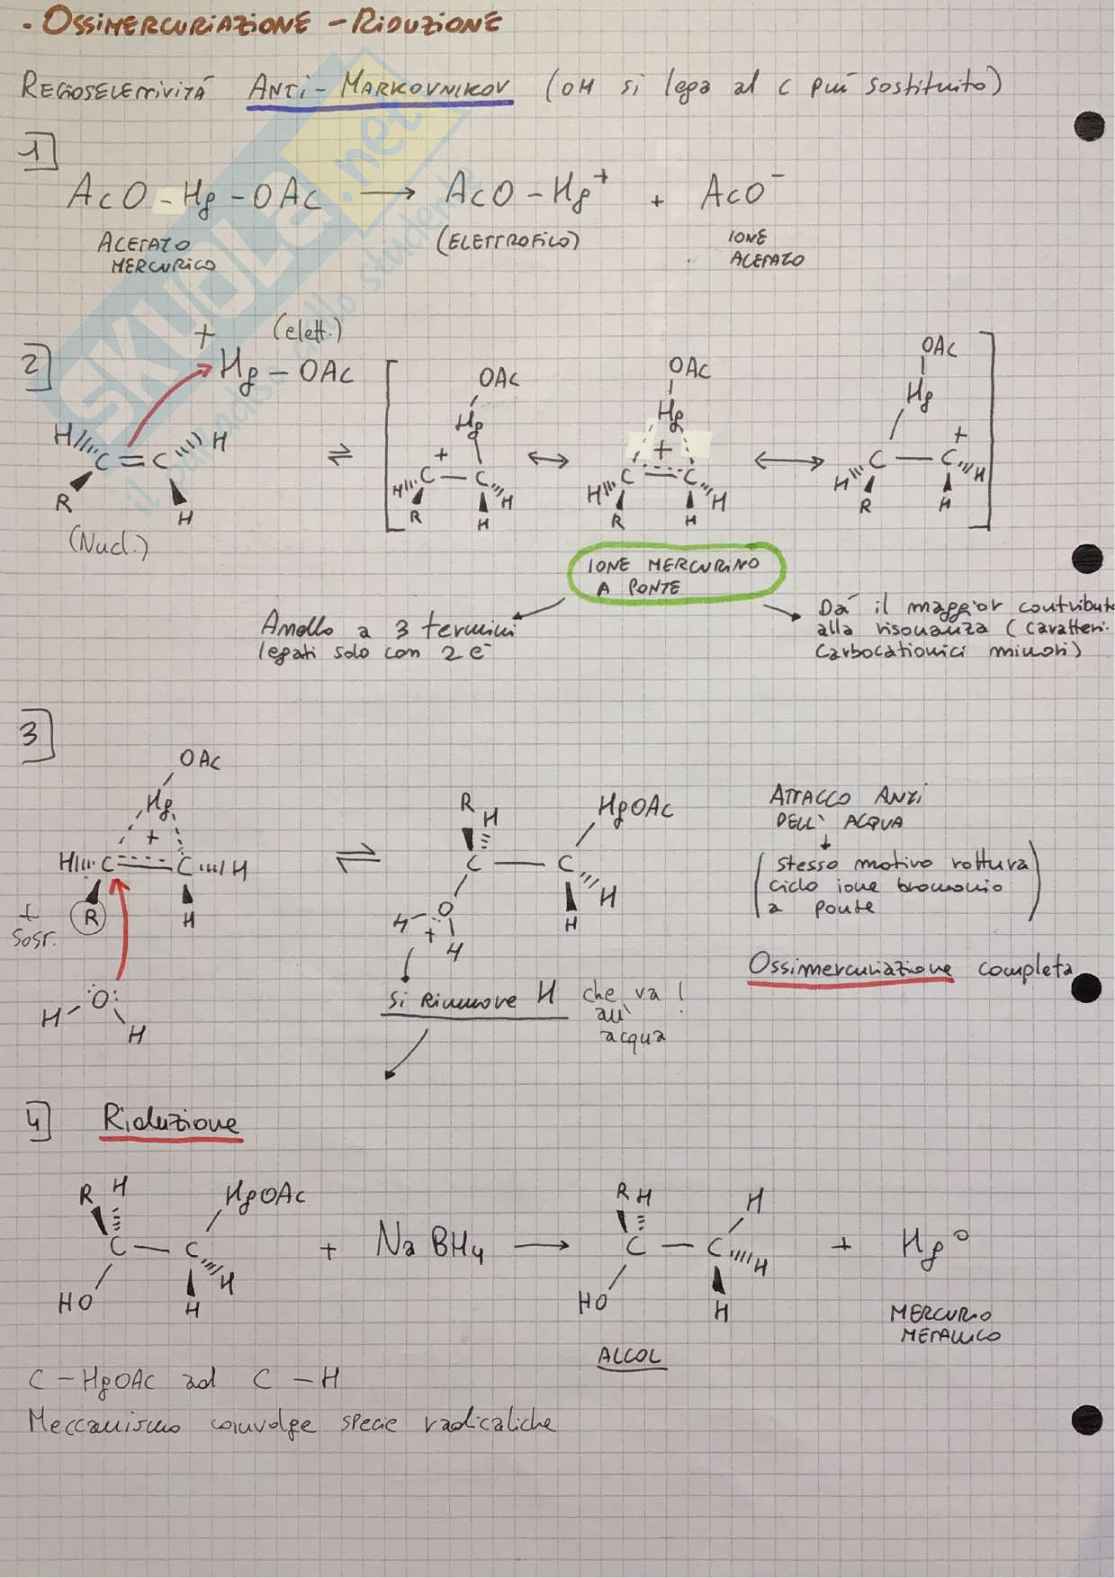 · OSSIMERCURIAZIONE - RIDUZIONE
REGIOSELETTIVITÁ ANTI-MARKOVNIKOV (OH si lega al C piú sostituito)
1]
AcO - Hg - OAc → AcO - Hg+ + AcO-
ACETATO MERCURICO
(ELETTROFILO)
IONE ACETATO
2]
+ (elett.)
Hg - OAc
H C = C H
R H
(Nucl.)
⇌
[ OAc
Hg
+
H C - C H
R H
↔
OAc
Hg
+
H C = C H
R H
↔
OAc
Hg
+
H C - C H
R H ]
IONE MERCURINO
A PONTE
Anello a 3 termini
legati solo con 2 e-
Dá il maggior contributo
alla risonanza (caratteri
carbocationici minori)
3]
OAc
Hg
+
H C = C H
R H
+
Sost.
H O H
⇌
R H HgOAc
C - C
H O H
+ H H
ATTACCO ANTI
DELL' ACQUA
(stesso motivo rottura
ciclo ione bromonio
a ponte)
Ossimercuriazione completa
Si Rimuove H che va
all'
acqua !
4] Riduzione
R H HgOAc
C - C
HO H H
+ NaBH4 →
R H H
C - C H
HO H
+ Hg°
MERCURIO
METALLICO
ALCOL
C - HgOAc ad C - H
Meccanismo coinvolge specie radicaliche
SKUOLA.net